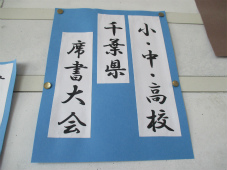 小・中・高校
千葉県
席書大会